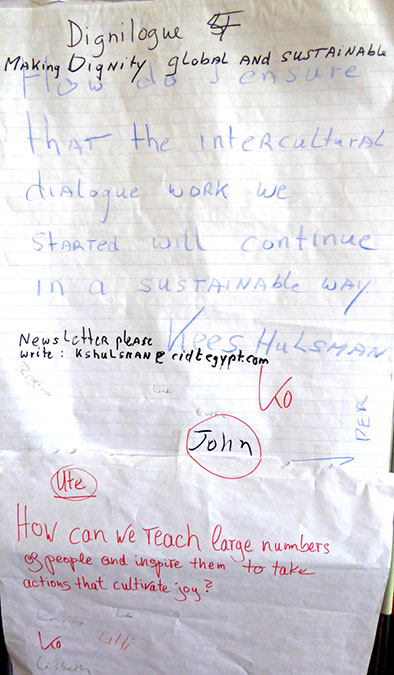 Dignilogue
MAKING DIGNITY GLOBAL AND SUSTAINABLE
How do I ensure
THAT the INTERCULTURAL
dIALOGUE WORK WE
STARTED WILL CONTINUE
IN A SUSTAINABLE WAY
Kees HULSMAN
NEWSLETTER PLEASE
WRITE : KSHULSMAN@cidtegypt.com
KO
PER
John
Ute
How can we TEach large numbers
of people and inspire them to take
actions that cultivate joy?
KO
Lilli